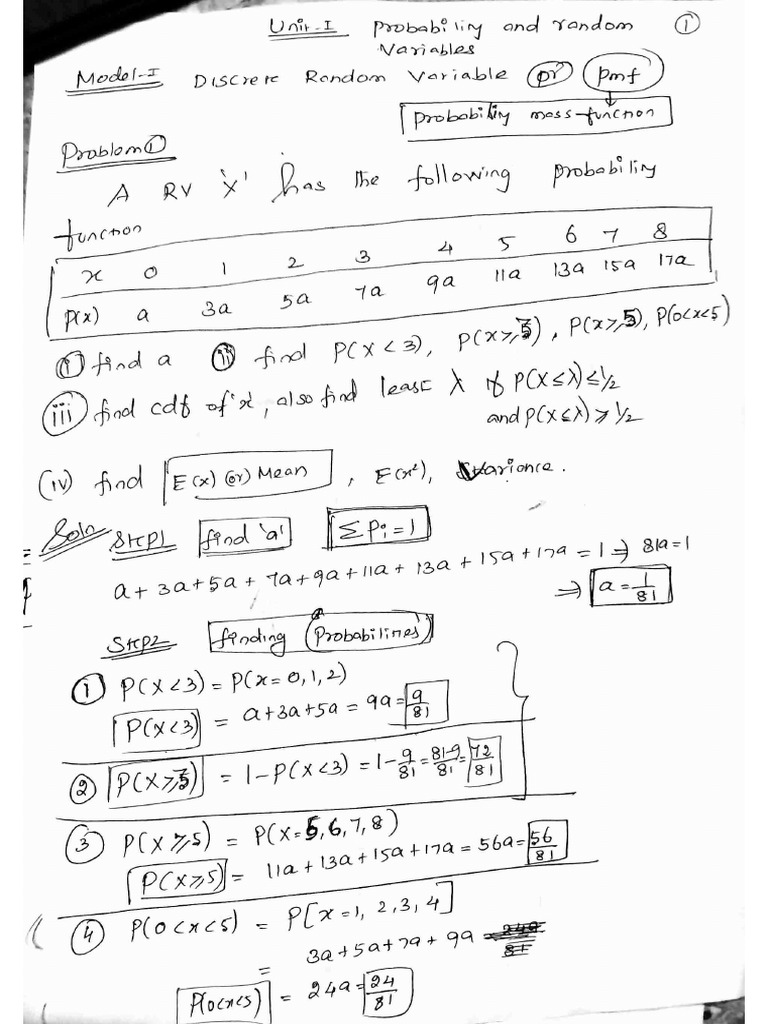 Unit-I Probability and random ①
Variables
Model-I Discrete Random Variable or pmf
probability mass-function
Problem①
A RV 'X' has the following probability
function
x 0 1 2 3 4 5 6 7 8
P(x) a 3a 5a 7a 9a 11a 13a 15a 17a
(i) find a (ii) find P(X<3), P(X≥3), P(X≥5), P(0<x<5)
(iii) find cdf of 'x', also find least λ if P(X≤λ)≤1/2
and P(X≤λ)≥1/2
(iv) find E(x) (or) Mean, E(x²), Variance.
Soln Step1 find 'a' ΣPi=1
a+3a+5a+7a+9a+11a+13a+15a+17a=1 ⇒ 81a=1
⇒ a=1/81
Step2 finding Probabilities
① P(X<3)=P(x=0,1,2)
P(X<3) = a+3a+5a = 9a = 9/81
② P(X≥3) = 1-P(X<3) = 1-9/81 = 81-9/81 = 72/81
③ P(X≥5) = P(X=5,6,7,8)
P(X≥5) = 11a+13a+15a+17a = 56a = 56/81
④ P(0<x<5) = P[x=1,2,3,4]
= 3a+5a+7a+9a
P(0<x<5) = 24a = 24/81